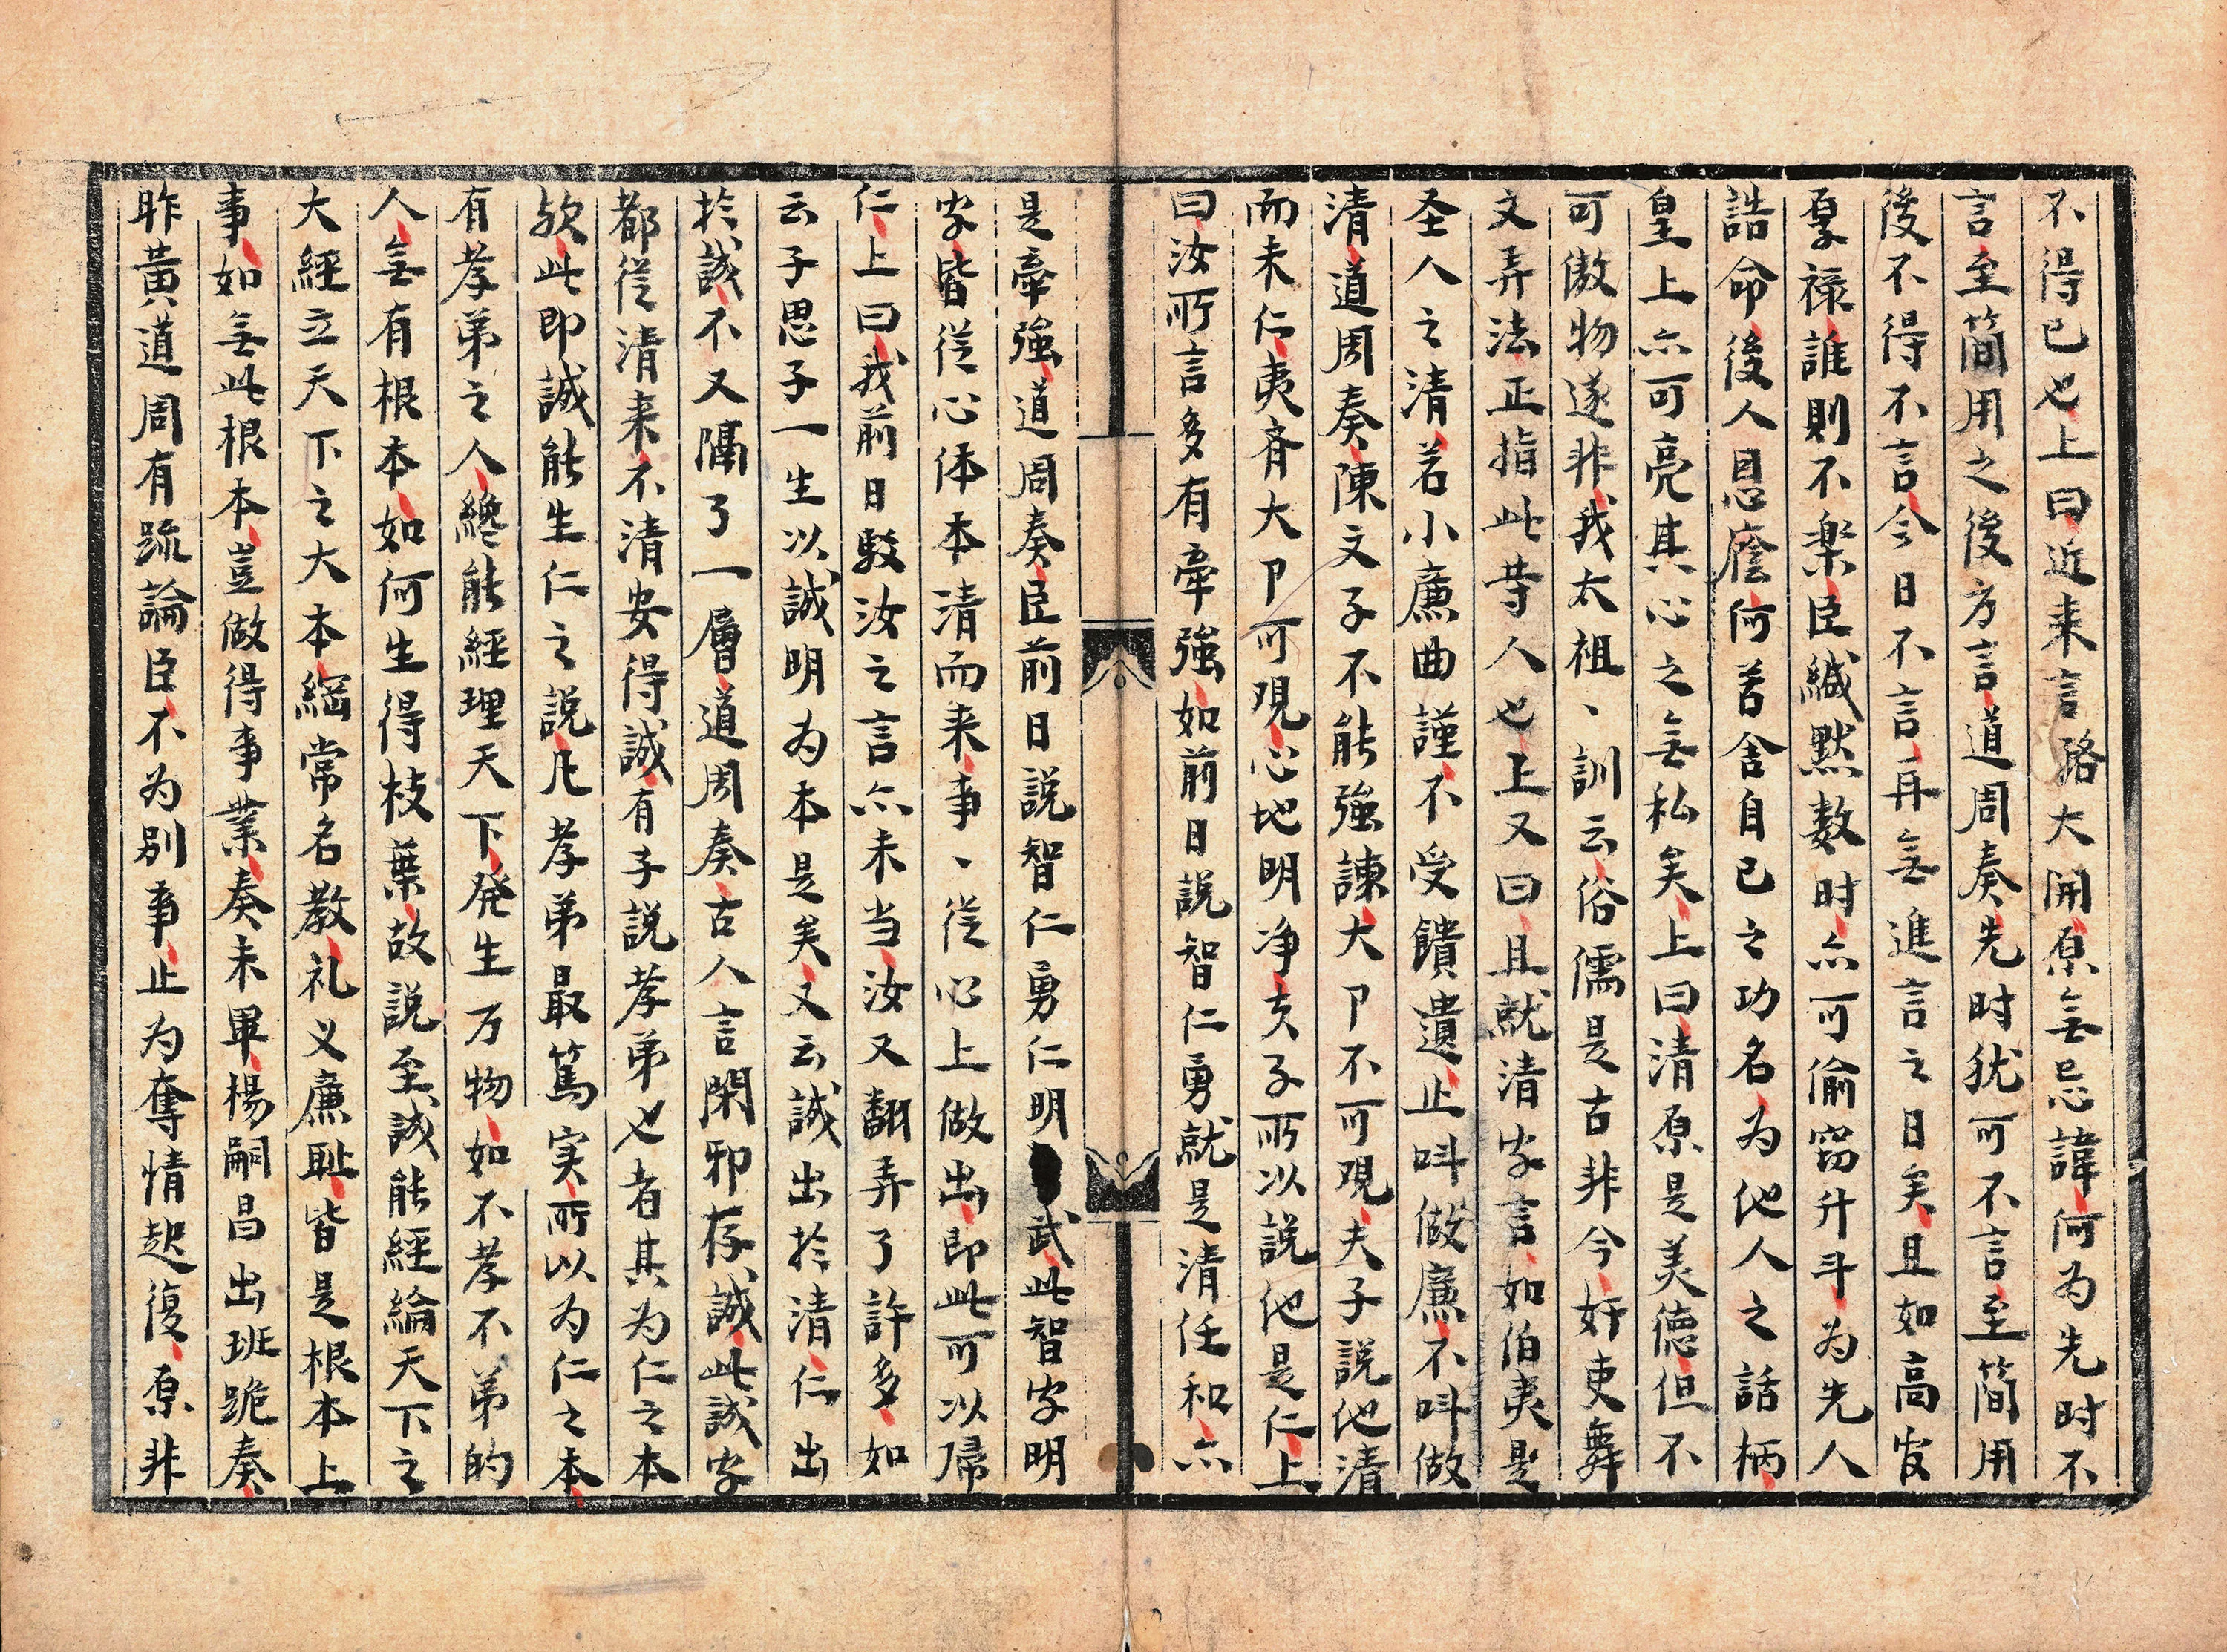 不得已也上曰近来言路大開原無忌諱何为先时不
言至簡用之後方言道周奏先时犹可不言至簡用
後不得不言今日不言再無進言之日矣且如高官
厚禄誰則不楽臣緘默数时亦可偷窃升斗为先人
誥命後人恩廕何苦舍自己之功名为他人之話柄
皇上亦可亮其心之無私矣上曰清原是美德但不
可傲物遂非我太祖、訓云俗儒是古非今奸吏舞
文弄法正指此等人也上又曰且就清字言如伯夷是
圣人之清若小廉曲謹不受饋遺止呌做廉不呌做
清道周奏陳文子不能強諫大卩不可观夫子説他清
而未仁夷齐大卩可观心地明净夫子所以説他是仁上
曰汝所言多有牽強如前日説智仁勇就是清任和亦
是牽強道周奏臣前日説智仁勇仁明武此智字明
字皆從心体本清而来事、從心上做出即此可以歸
仁上曰我前日駁汝之言亦未当汝又翻弄了許多如
云子思子一生以誠明为本是矣又云誠出於清仁出
於誠不又隔了一層道周奏古人言閑邪存誠此誠字
都從清来不清安得誠有子説孝弟也者其为仁之本
欤此即誠能生仁之説凡孝弟最篤实所以为仁之本
有孝弟之人纔能經理天下発生万物如不孝不弟的
人無有根本如何生得枝葉故説至誠能經綸天下之
大經立天下之大本綱常名教礼义廉耻皆是根本上
事如無此根本豈做得事業奏未畢楊嗣昌出班跪奏
昨黄道周有疏論臣不为别事止为奪情起復原非